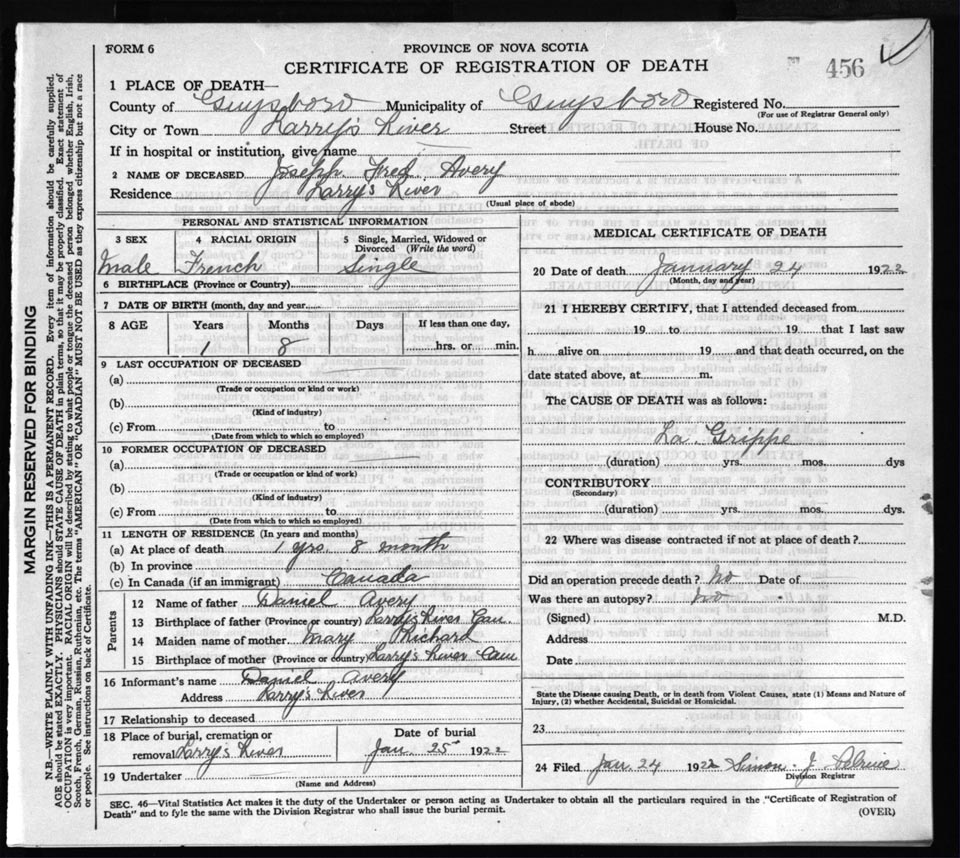 FORM 6
PROVINCE OF NOVA SCOTIA
CERTIFICATE OF REGISTRATION OF DEATH
456
1 PLACE OF DEATH—
County of Guysboro Municipality of Guysboro Registered No.
(For use of Registrar General only)
City or Town Larry's River Street House No.
If in hospital or institution, give name
2 NAME OF DECEASED Joseph Fred Avery
Residence Larry's River
(Usual place of abode)
PERSONAL AND STATISTICAL INFORMATION
3 SEX 4 RACIAL ORIGIN 5 Single, Married, Widowed or Divorced (Write the word)
Male French Single
6 BIRTHPLACE (Province or Country)
7 DATE OF BIRTH (month, day and year)
8 AGE Years Months Days If less than one day,
1 8 hrs. or min.
9 LAST OCCUPATION OF DECEASED
(a)
(Trade or occupation or kind or work)
(b)
(Kind of industry)
(c) From to
(Date from which to which so employed)
10 FORMER OCCUPATION OF DECEASED
(a)
(Trade or occupation or kind of work)
(b)
(Kind of industry)
(c) From to
(Date from which to which so employed)
11 LENGTH OF RESIDENCE (In years and months)
(a) At place of death 1 yrs. 8 month
(b) In province
(c) In Canada (if an immigrant) Canada
Parents
12 Name of father Daniel Avery
13 Birthplace of father (Province or country) Larry's River Can.
14 Maiden name of mother Mary Richard
15 Birthplace of mother (Province or country) Larry's River Can
16 Informant's name Daniel Avery
Address Larry's River
17 Relationship to deceased
18 Place of burial, cremation or Date of burial
removal Larry's River Jan 25th 1922
19 Undertaker
(Name and Address)
MEDICAL CERTIFICATE OF DEATH
20 Date of death January 24 1922
(Month, day and year)
21 I HEREBY CERTIFY, that I attended deceased from
19 to 19 that I last saw
h alive on 19 and that death occurred, on the
date stated above, at m.
The CAUSE OF DEATH was as follows:
La Grippe
(duration) yrs. mos. dys
CONTRIBUTORY
(Secondary)
(duration) yrs. mos. dys.
22 Where was disease contracted if not at place of death?
Did an operation precede death? No Date of
Was there an autopsy? No
(Signed) M.D.
Address
Date
State the Disease causing Death, or in death from Violent Causes, state (1) Means and Nature of
Injury, (2) whether Accidental, Suicidal or Homicidal.
23
24 Filed Jan 24 1922 Simon J.
Division Registrar
SEC. 46—Vital Statistics Act makes it the duty of the Undertaker or person acting as Undertaker to obtain all the particulars required in the "Certificate of Registration of
Death" and to fyle the same with the Division Registrar who shall issue the burial permit.
(OVER)
MARGIN RESERVED FOR BINDING
N.B.—WRITE PLAINLY WITH UNFADING INK—THIS IS A PERMANENT RECORD. Every item of information should be carefully supplied.
AGE should be stated EXACTLY. PHYSICIANS should STATE CAUSE OF DEATH in plain terms, so that it may be properly classified. Exact statement of
OCCUPATION is very important. RACIAL ORIGIN will be described by stating to what people or tongue the deceased person belonged whether English, Irish,
Scotch, French, German, Russian, Ruthenian, etc. The terms "AMERICAN" OR "CANADIAN" MUST NOT BE USED as they express citizenship but not a race
or people. See instructions on back of Certificate.